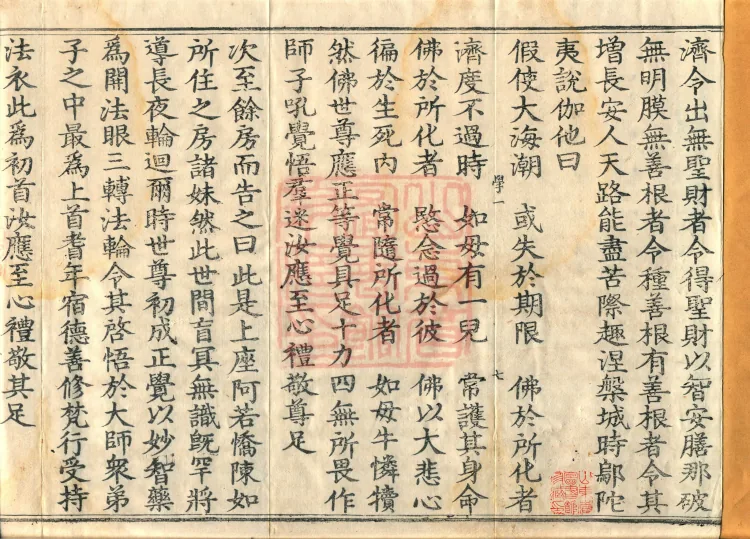 濟令出無聖財者令得聖財以智安膳那破
無明膜無善根者令種善根有善根者令其
增長安人天路能盡苦際趣涅槃城時鄔陀
夷說伽他曰
假使大海潮　或失於期限　佛於所化者
學一　七
濟度不過時　如母有一兒　常護其身命
佛於所化者　愍念過於彼　佛以大悲心
徧於生死內　常隨所化者　如母牛憐犢
然佛世尊應正等覺具足十力四無所畏作
師子吼覺悟羣迷汝應至心禮敬尊足
次至餘房而告之曰此是上座阿若憍陳如
所住之房諸妹然此世間盲冥無識旣罕將
導長夜輪迴爾時世尊初成正覺以妙智藥
爲開法眼三轉法輪令其啓悟於大師衆弟
子之中最爲上首耆年宿德善修梵行受持
法衣此爲初首汝應至心禮敬其足